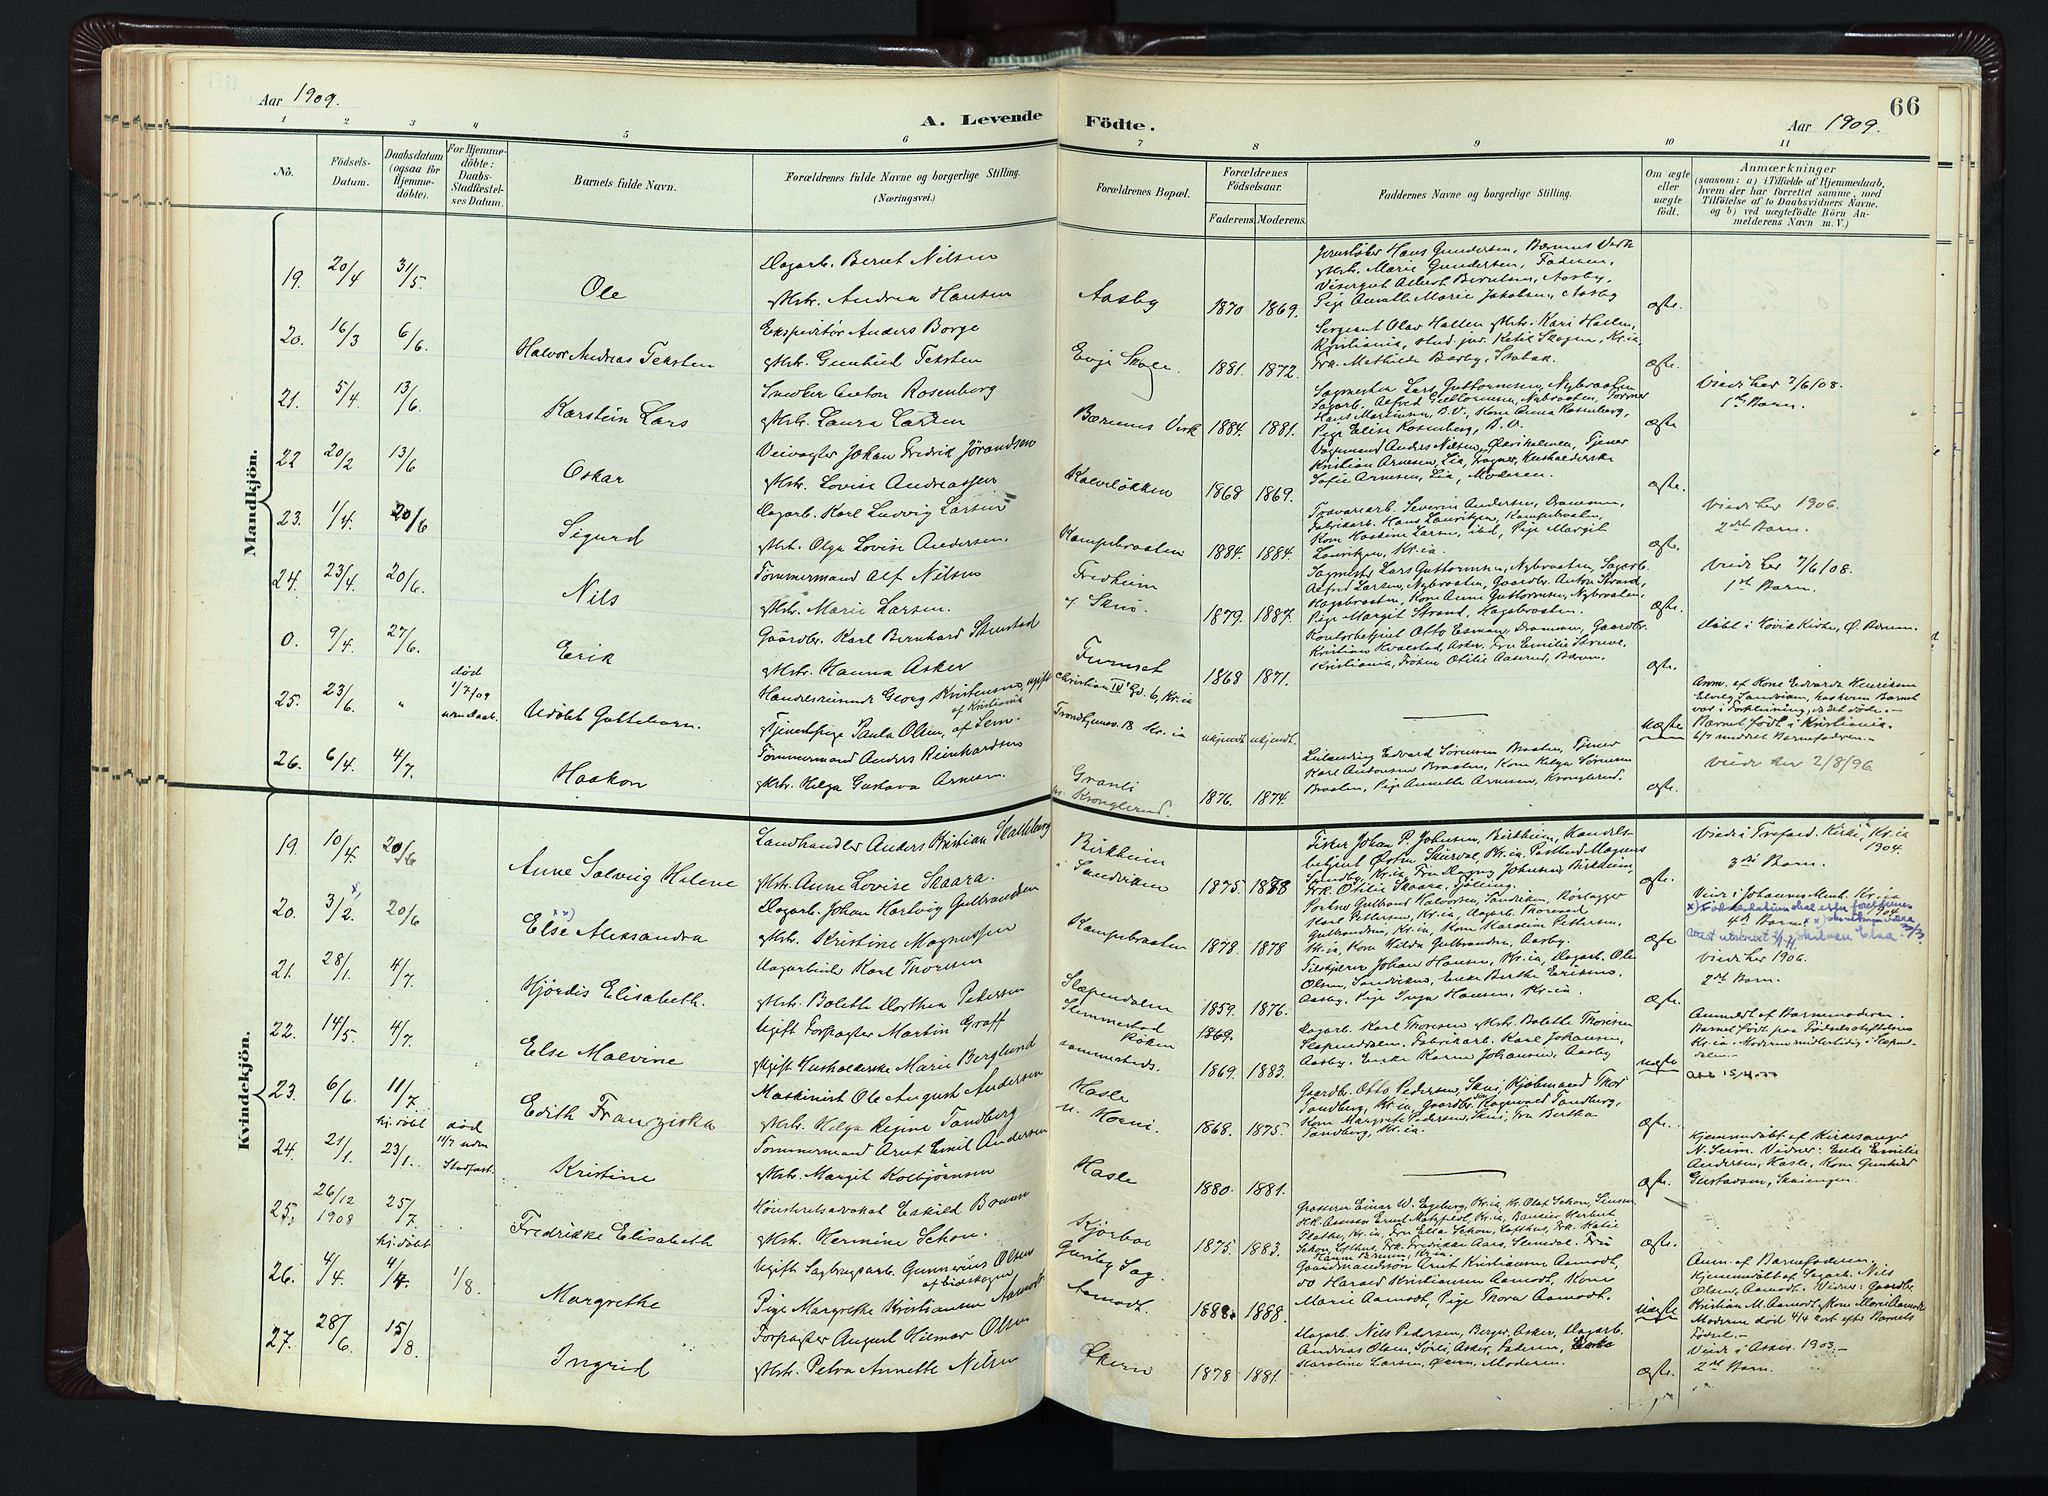 Aar 1909.
A. Levende
Födte.
Aar 1909.
66
1 2 3 4 5 6 7 8 9 10 11
No.
Födsels-
Datum.
Daabsdatum
(ogsaa for
Hjemme-
döbte).
For Hjemme-
döbte:
Daabs-
Stadfæstel-
ses Datum.
Barnets fulde Navn.
Forældrenes fulde Navne og borgerlige Stilling.
(Næringsvei.)
Forældrenes Bopæl.
Forældrenes
Födselsaar.
Faderens. Moderens.
Faddernes Navne og borgerlige Stilling.
Om ægte
eller
uægte
födt.
Anmærkninger
(saasom: a) i Tilfælde af Hjemmedaab,
hvem der har forrettet samme, med
Tilföielse af to Daabsvidners Navne,
og b) ved uægtefödte Börn An-
melderens Navn m. V.)
Mandkjön.
19. 20/4 31/5. Ole
Dagarb. Bernt Nilsen
Hstr. Andrea Hansen
Aasby 1870 1869.
Hans Gundersen, Bærums Verk
Hstr. Marie Gundersen, Faderen,
Visergut Albert Berntsen, Aasby,
Pige Amalie Marie Jakobsen, Aasby
ægte.
20. 16/3 6/6. Halvor Andreas Teksten
Ekspeditör Anders Borge
Hstr. Gunhild Teksten
Evje Skole. 1881. 1872.
Sergeant Olav Hallen Hstr. Kari Hallen,
Kristiania, stud. jur. Ketil Skogen, Kr.ia,
Frk. Mathilde Barby, Stabæk.
ægte.
21. 5/4. 13/6 Karstein Lars
Snedker Anton Rosenborg
Hstr. Laura Larsen
Bærums Verk 1884. 1881.
Sagmester Lars Guttormsen, Nybraaten,
Sagarb. Alfred Guttormsen, Nybraaten, Former
Hans Martinsen, B.V., Kone Anna Rosenborg,
Pige Elise Rosenberg, B.V.
ægte
Viedt her 7/6/08.
1ste Barn.
22 20/2 13/6 Oskar
Veivogter Johan Fredrik Jörandsen
Hstr. Lovise Andreassen
Kalveløkken 1868 1869.
Vognmand Anders Nilsen, Tjener
Kristian Arnesen, Lia, Husholderske
Sofie Arnesen, Lia, Moderen.
ægte.
23. 1/4. 20/6 Sigurd
Dagarb. Karl Ludvig Larsen
Hstr. Olga Lovise Andersen,
Kampebraaten 1884. 1884.
Severin Andersen, Drammen,
Fabrikarb. Hans Lauritzen, Kampebraaten,
Kone Larsen, ibd, Pige Margit
Lauritzen, Kr.ia.
ægte.
Viedt her 1906.
2det Barn.
24. 23/4. 20/6. Nils
Tömmermand Alf Nilsen
Hstr. Marie Larsen.
Fredheim
i Skui. 1879. 1887.
Sagmester Lars Guttormsen, Nybraaten, Sagarb.
Alfred Larsen, Nybraaten, Gaardbr. Anton Strand,
Hagabraaten, Kone Anne Guttormsen, Nybraaten,
Pige Margit Strand, Hagabraaten.
ægte.
Viedt her 7/6/08.
1ste Barn.
0. 9/4. 27/6. Erik
Gaardbr. Karl Bernhard Stenstad
Hstr. Hanna Asker
Furuset 1868 1871.
Kontorbetjent Otto Esman, Drammen, Gaardbr.
Kristian Hvalstad, Asker, Fru Emilie Struve,
Kristiania, Frøken Otilie Aaserud, Bærum.
ægte.
döbt i Høvik Kirke, Ø. Bærum.
25. 23/6. " död
1/7/09
uden daab. Udöbt Guttebarn.
Handelsreisende Georg Kristensen, ugift
af Kristiania
Tjenestepige Paula Olsen, af Sem.
Christian IV Gd. 6, Kr.ia
Trondhjemsv. 13 Kr.ia ukjendt ukjendt.
uægte
Anm. af Kone Edvarda Henriksen
Elveg. Sandviken, hos hvem Barnet
var i Forpleining, da det döde.—
Barnet födt i Kristiania.
26. 6/4. 4/7. Haakon
Tömmermand Anders Reinhardsen
Hstr. Helga Gustava Arnesen.
Granli
Kronglerud. 1876. 1874.
Edvard Sörensen Braaten, Tjener
Karl Antonsen Braaten, Kone Helga Sörensen
Braaten, Pige Annette Arnesen, Kronglerud.
ægte.
Viedt her 2/8/96.
Kvindekjön.
19. 10/4. 20/6 Anne Solveig Helene
Landhandler Anders Kristian Skalleberg
Hstr. Anne Lovise Skaara.
Birkheim
i Sandviken 1875. 1878
Fisker Johan P. Johnsen, Birkheim, Handels-
betjent Østen Skurdal, Kr.ia, Postbud Magnus
Sundby, Kr.ia, Fru Ragna Johnsen, Birkheim,
Frk. Otilie Skaara,
ægte.
Viedt i Trefold. Kirke, Kr.ia
1904.
3die Barn.
20. 3/2. x) 20/6 Else x x) Aleksandra
Dagarb. Johan Hartvig Gulbrandsen
Hstr. Kristine Magnussen
Kampebraaten 1878. 1878
Portner Gulbrand Halvorsen, Sandviken, Rörlægger
Karl Pettersen, Kr.ia, Dagarb. Thorvald
Gulbrandsen, Kr.ia, Kone Karoline Pettersen,
Kr.ia, Kone Hilda Gulbrandsen, Aasby.
ægte
Viedt i Johannes Menh. Kr.ia
1904.
4de Barn.
21. 28/1. 4/7. Hjördis Elisabeth.
Dagarbeider Karl Thoresen
Hstr. Bolette Dorthea Pedersen
Slæpendalen 1859. 1876.
Filskjærer Johan Hansen, Kr.ia, Dagarb. Ole
Olsen, Sandviken, Enke Berthe Eriksen,
Aasby, Pige Inga Hansen, Kr.ia.
ægte.
Viedt her 1906.
2det Barn.
22. 14/5. 4/7. Else Malvine
Ugift Forpagter Martin Graff
Ugift Husholderske Marie Berglund
Slemmestad
Röken 1869.
sammesteds. 1869. 1883.
Dagarb. Karl Thoresen Hstr. Bolette Thoresen
Slæpendalen, Fabrikarb. Karl Johansen,
Aasby, Enke Karen Johansen, Aasby
uægte
Anmeldt af Barnemoderen.
Barnet födt paa Födselsstiftelsen
Kr.ia. Moderen midlertidig i Slæpen-
dalen.
23. 6/6. 11/7 Edith Franziska
Maskinist Ole August Andersen
Hstr. Helga Regine Tandberg
Hasle
1868. 1875.
Gaardbr. Otto Pedersen, Skui, Kjöbmand Thor
Tandberg, Kr.ia, Gaardbr. Ragnvald Tandberg,
Kone Margrete Pedersen, Skui, Fru Berthe
Tandberg, Kr.ia.
ægte.
24. 21/1. hj.döbt
23/1. död
11/7 uden
Stadfæst. Kristine
Tömmermand Arnt Emil Andersen
Hstr. Margit Kolbjörnsen
Hasle 1880. 1881.
ægte.
Hjemmedöbt af Kirkesanger
N. Sem. Vidner: Enke Emilie
Andersen, Hasle, Kone Gunhild
Gustavsen, Skaiengen.
25. 26/12
1908 25/7. Fredrikke Elisabeth
Höiesteretsadvokat Eskild Bruun
Hstr. Hermine Schou.
Kjörbo 1875. 1883.
Grosserer Einar W. Egeberg, Kr.ia, Hr. Olaf Schou,
Ernst Motzfeldt, Kr.ia, Bankier Herbert
Plahte, Kr.ia, Fru Ella Schou, Lofthus, Frk. Katie
Schou, Lofthus, Frk. Fredrikke Aars, Slemdal, Fru
Bruun, Kr.ia.
ægte.
26. 4/4. hj.döbt
4/4. 1/8. Margrethe
Ugift Sagbrugsarb. Gunnerius Olsen
Pige Margrethe Kristiansen Aamodt.
Guriby Sag.
Aamodt. 1888. 1888.
Gaardmandssön Arnt Kristiansen Aamodt,
do Harald Kristiansen Aamodt, Kone
Marie Aamodt, Pige Thora Aamodt.
uægte
Anm. af Barnefaderen.
Hjemmedöbt af Sagarb. Nils
Olsen, Aamodt. Vidner: Gaardbr.
Kristian M. Aamodt, Kone Marie Aamodt
Moderen död 4/4 kort efter Barnets
Födsel.—
27. 28/6 15/8. Ingrid
Forpagter August Hilmar Olsen
Hstr. Petra Annette Nilsen
Økern 1878 1881.
Dagarb. Nils Pedersen, Berger, Asker, Dagarb.
Andreas Olsen, Asker, Faderen,
Karoline Larsen, Moderen.
ægte.
Viedt i Asker 1903.—
2det Barn.